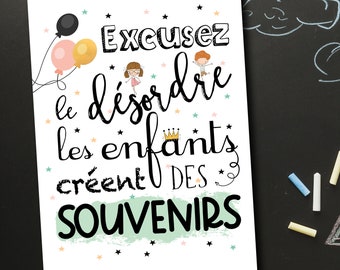 Excusez
le désordre
les enfants
créent DES
SOUVENIRS